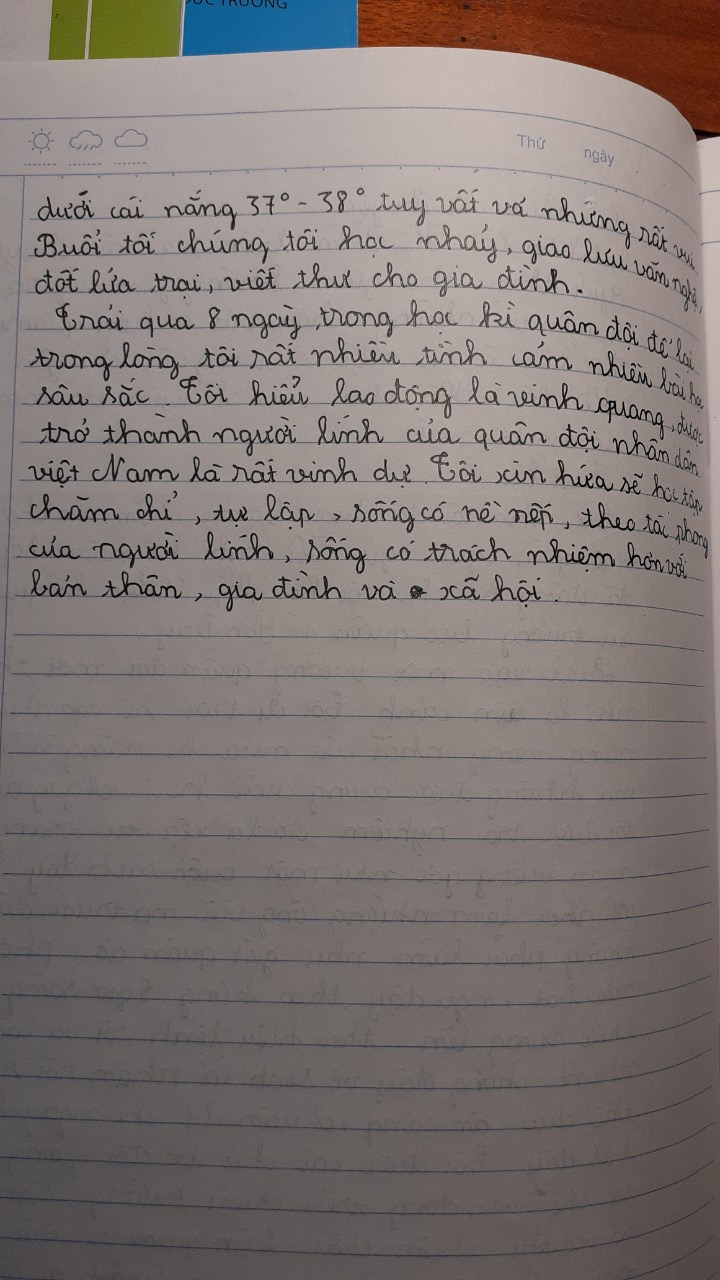 ỨC TRƯỜNG
Thứ ngày
dưới cái nắng 37° - 38° tuy vất vả những rất vui
Buổi tối chúng tôi học nhảy, giao lưu văn nghệ,
đốt lửa trại, viết thư cho gia đình.
Trải qua 8 ngày, trong học kì quân đội để lại
trong lòng tôi rất nhiều tình cảm nhiều bài học
sâu sắc. Tôi hiểu lao động là vinh quang, được
trở thành người lính của quân đội nhân dân
việt Nam là rất vinh dự. Tôi xin hứa sẽ học tập
chăm chỉ, tự lập, sống có nề nếp, theo tác phong
của người lính, sống có trách nhiệm hơn với
bản thân, gia đình và xã hội.